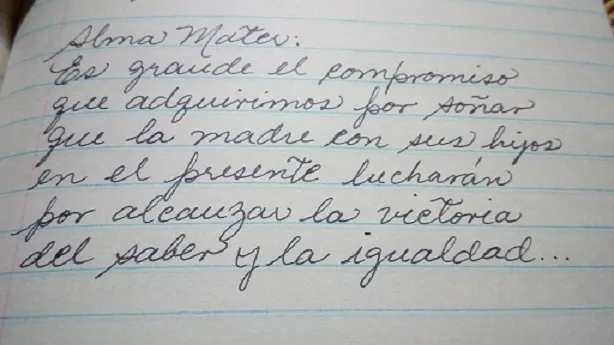 Alma Mater:
Es grande el compromiso
que adquirimos por soñar
que la madre con sus hijos
en el presente lucharán
por alcanzar la victoria
del saber y la igualdad...